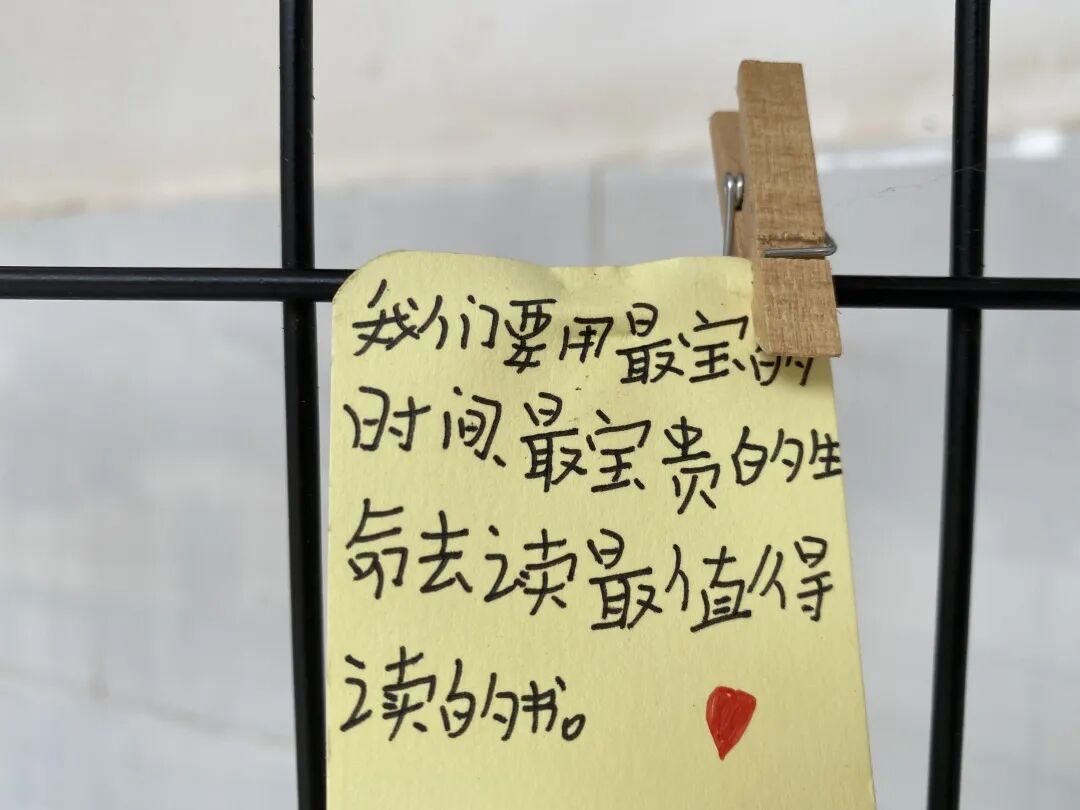 我们要用最宝的
时间、最宝贵的生
命去读最值得
读的书。